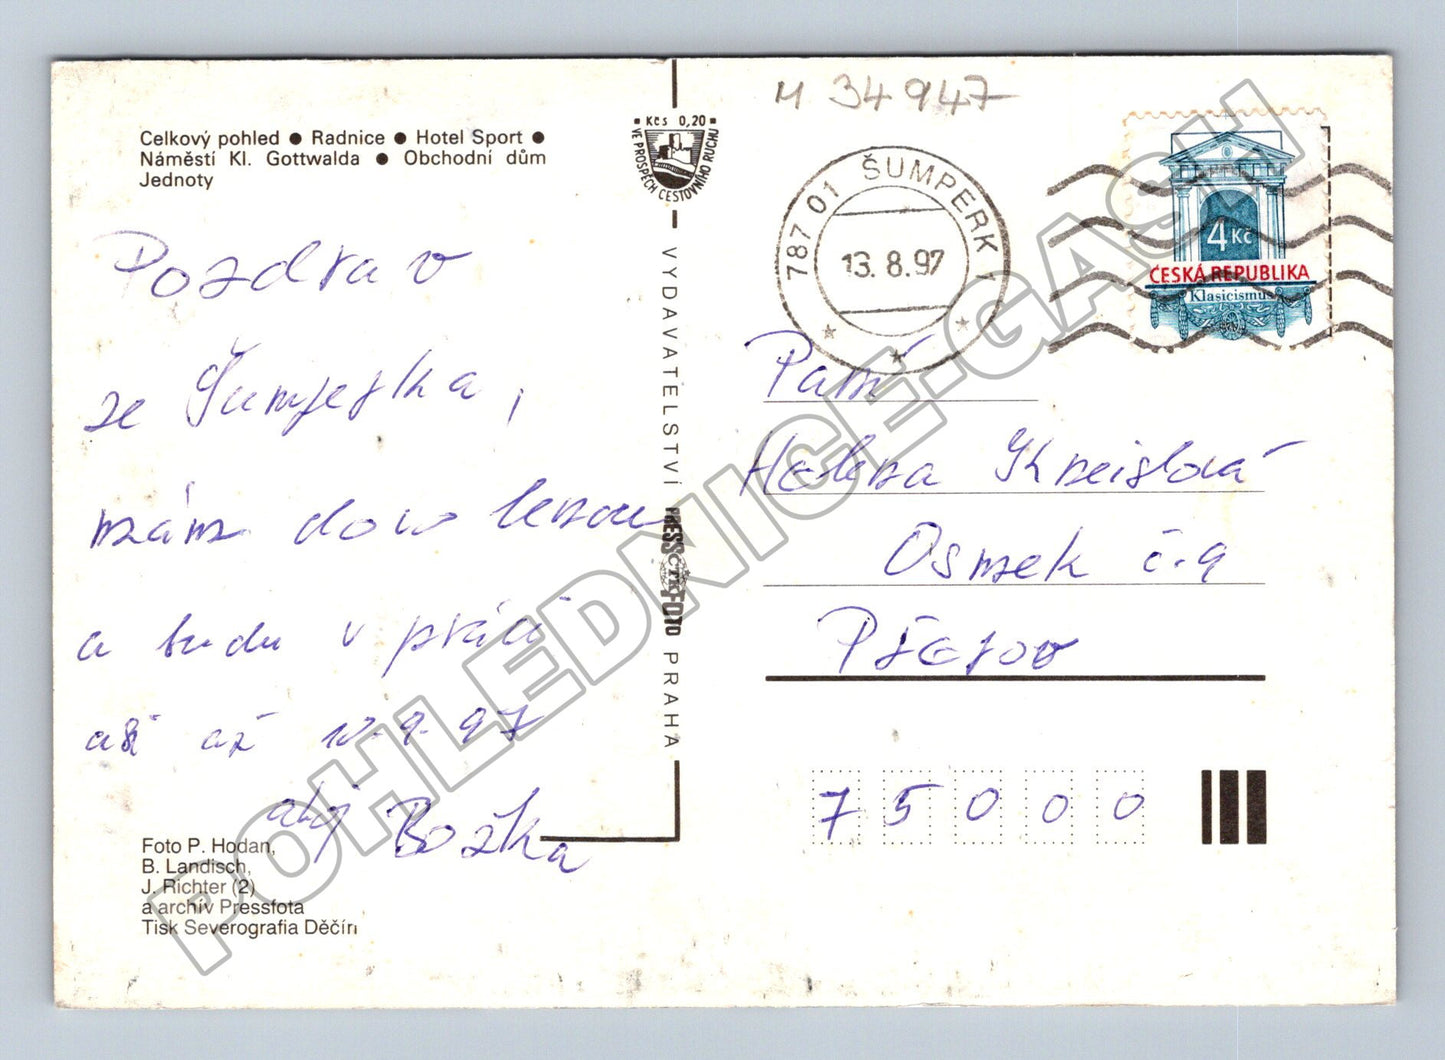 Celkový pohled ● Radnice ● Hotel Sport ●
Náměstí Kl. Gottwalda ● Obchodní dům
Jednoty
Pozdrav
ze Šumperka,
mám dovolenou
a budu v práci
až 10.9.97
ahoj Božka
Foto P. Hodan,
B. Landisch,
J. Richter (2)
a archiv Pressfota
Tisk Severografia Děčín
Kčs 0,20
VE PROSPĚCH CESTOVNÍHO RUCHU
VYDAVATELSTVÍ PRESSFOTO PRAHA
ČTK
M 34947
787 01 ŠUMPERK 1
13.8.97
4 Kč
ČESKÁ REPUBLIKA
Klasicismus
Paní
Helena
Osmek č.9
Přerov
75000
POHLEDNICE.GASH